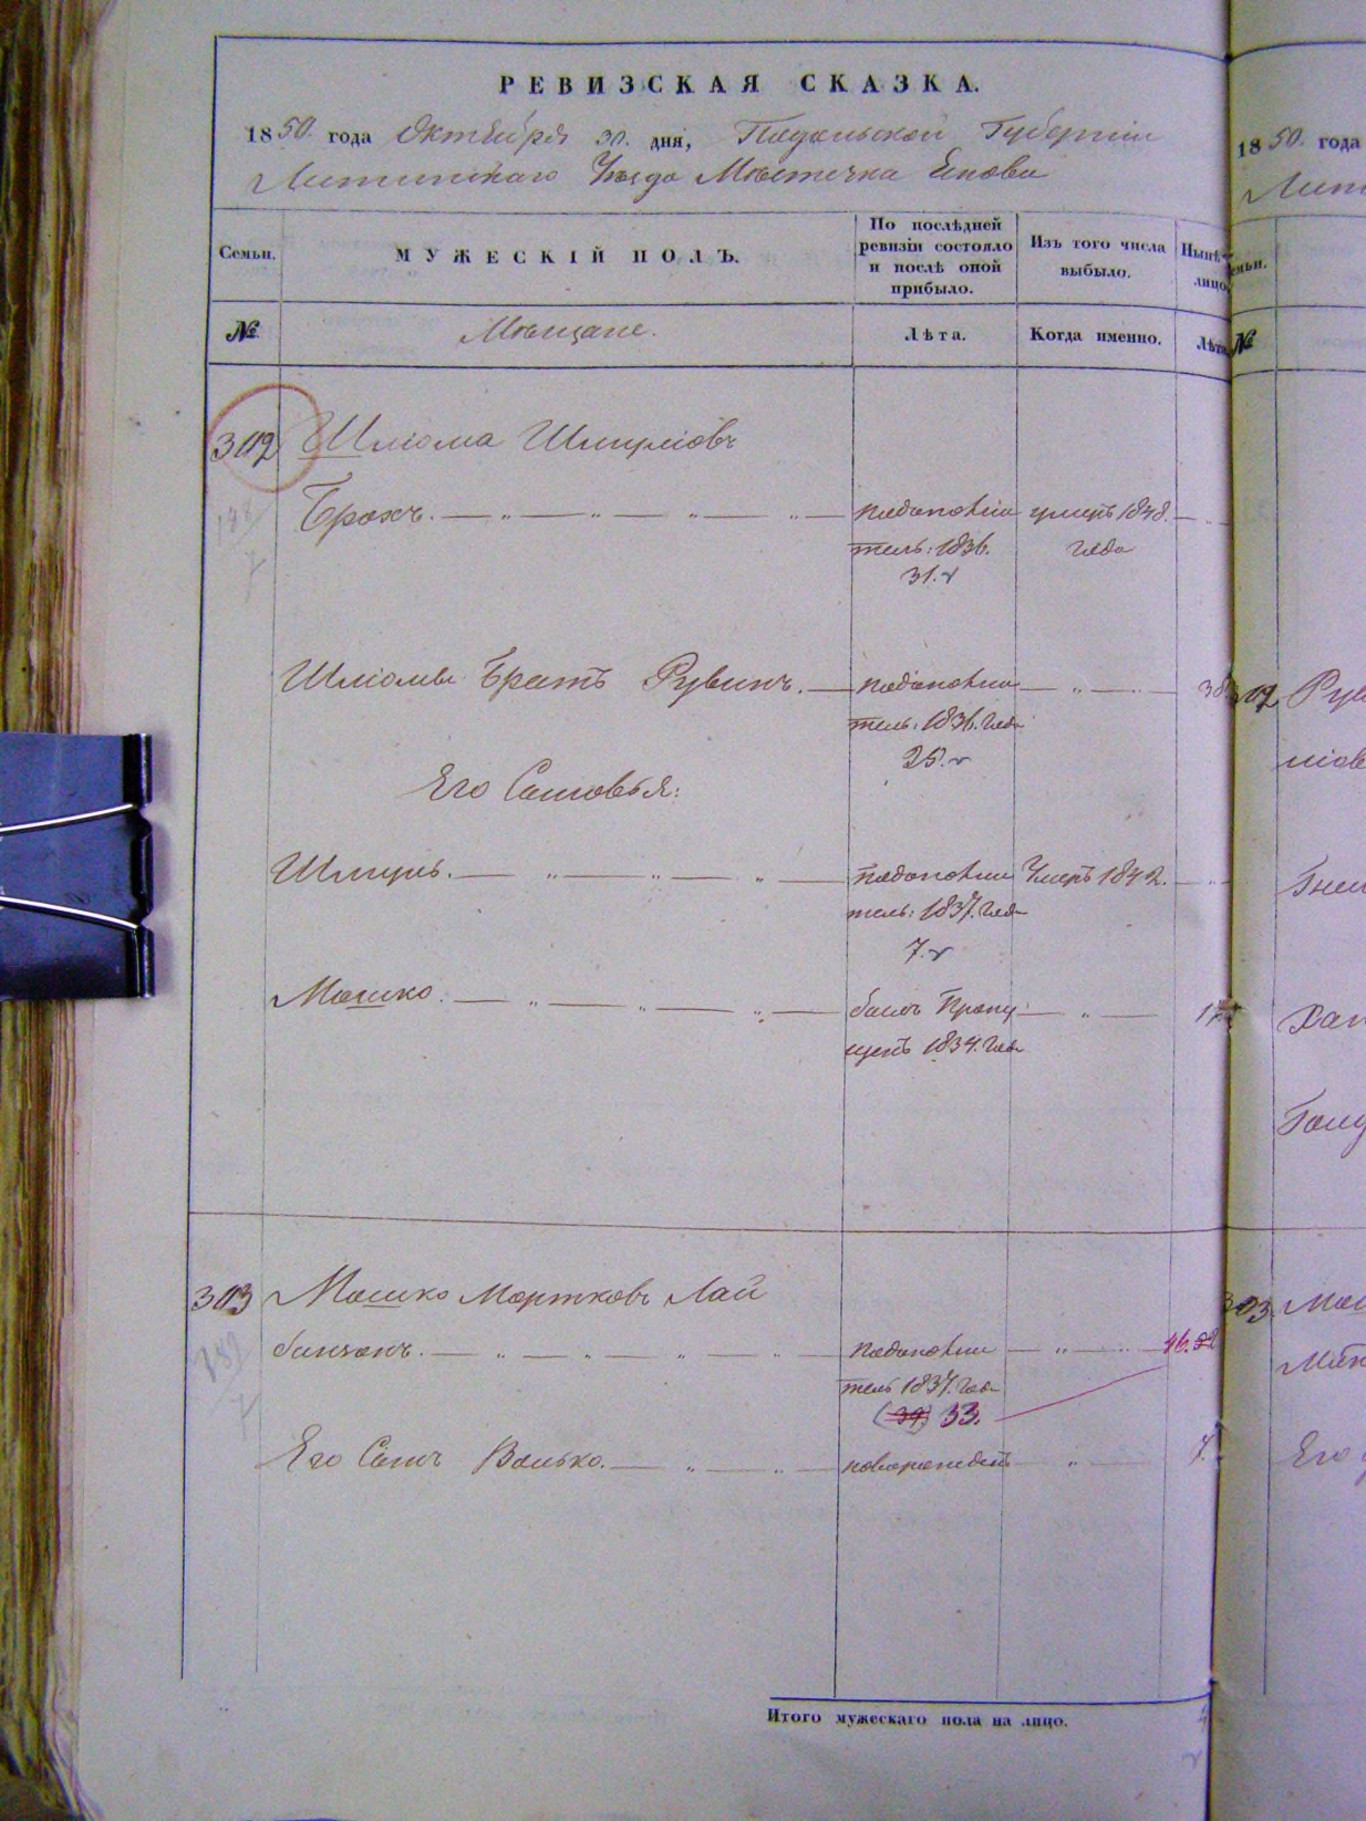 РЕВИЗСКАЯ СКАЗКА.
1850 года Октября 30 дня, Подольской Губернiи
Литинскаго Уѣзда Мѣстечка
Семьи.
МУЖЕСКIЙ ПОЛЪ.
По послѣдней ревизiи состояло и послѣ оной прибыло.
Изъ того числа выбыло.
Нынѣ
лицо
№
Мѣщане.
Лѣта.
Когда именно.
Лѣта
302 Шлiома Шмулiовъ
Брохъ. подополни умеръ 1848.
тель: 1836. года
31.
Шлiомы Братъ Рувинъ. подополни 38
тель: 1836. года
25.
Его Сыновья:
Шмуль. подополни Умеръ 1842.
тель: 1837. года
7.
Мошко. былъ Пропу
щенъ 1834. года
303 Мошко Мортковъ Лай
бинзонъ. подополни 46.
тель 1837. года
(39) 33.
Его Сынъ Волько. новорожденъ 7.
Итого мужескаго пола на лицо.
1850. года
Лит
емьи.
№
Рув
лiов
Хан
303. Мош
Его